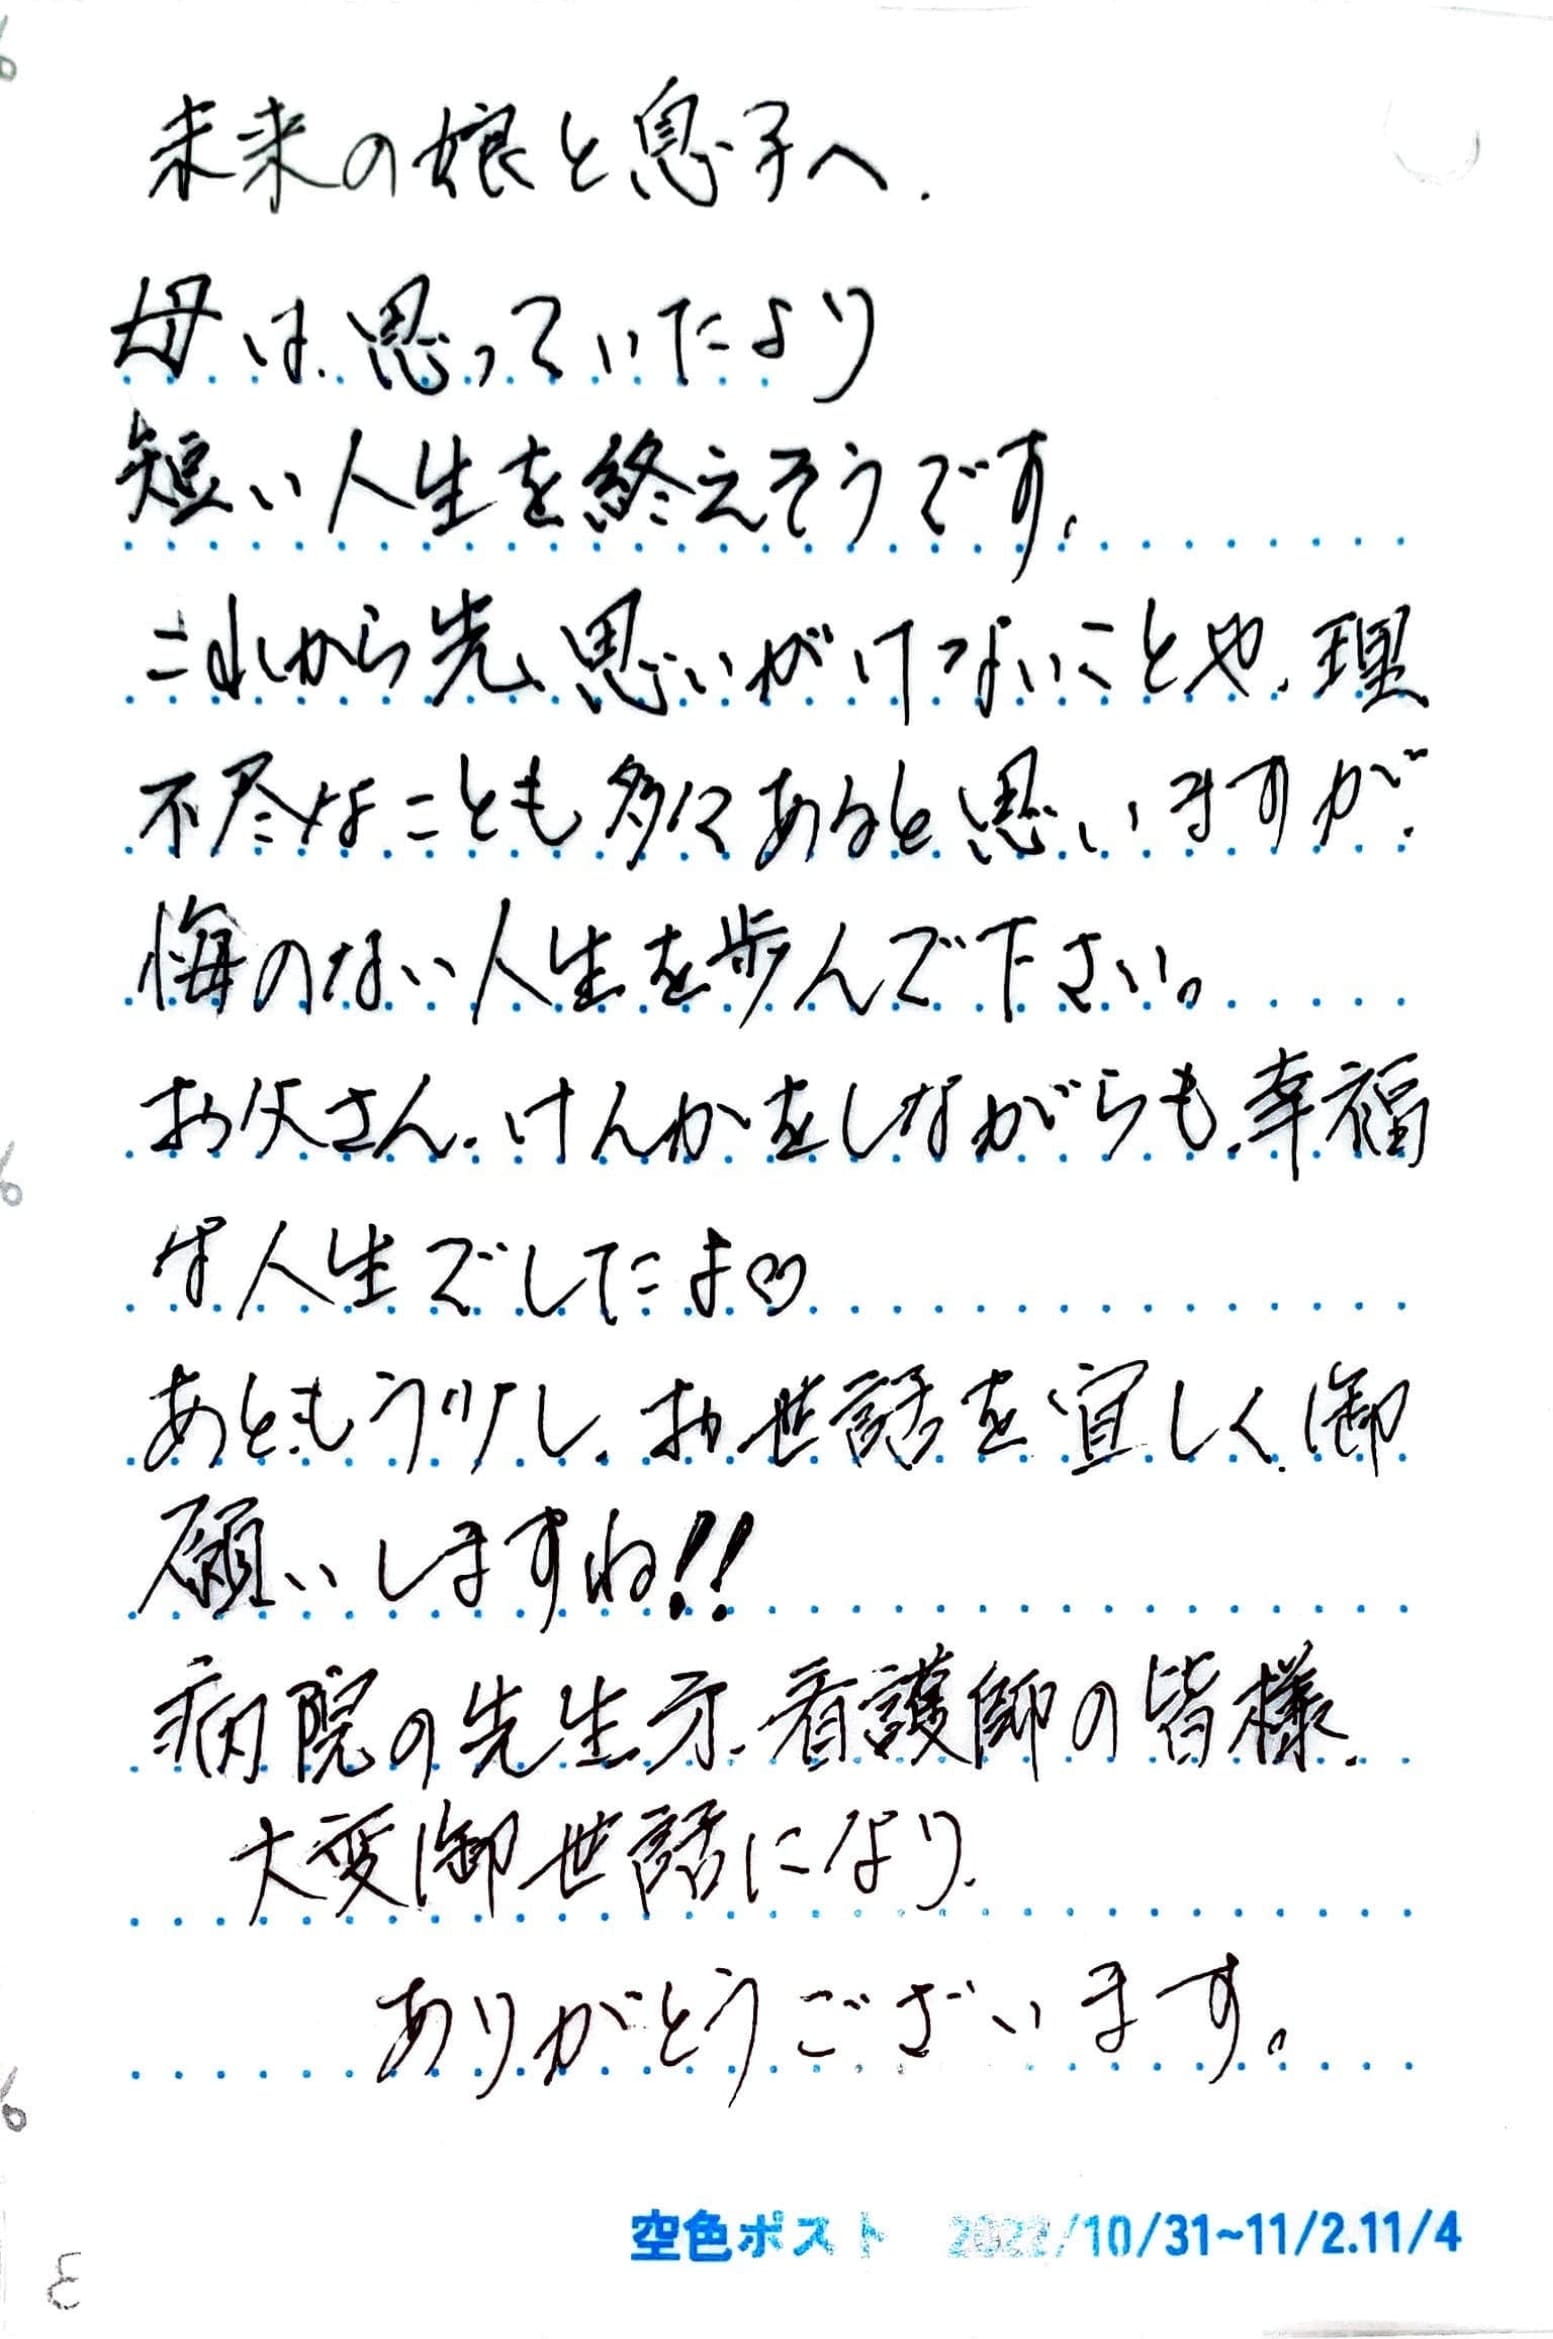 未来の娘と息子へ.
母は、思っていたより
短い人生を終えそうです。
これから先、思いがけないことや、理
不尽なことも多々あると思いますが、
悔のない人生を歩んで下さい。
お父さん、けんかをしながらも、幸福
な人生でしたよ♡
あともう少し、お世話を宜しく御
願いしますね!!
病院の先生方、看護師の皆様、
大変御世話になり、
ありがとうございます。
空色ポスト 2022/10/31~11/2.11/4